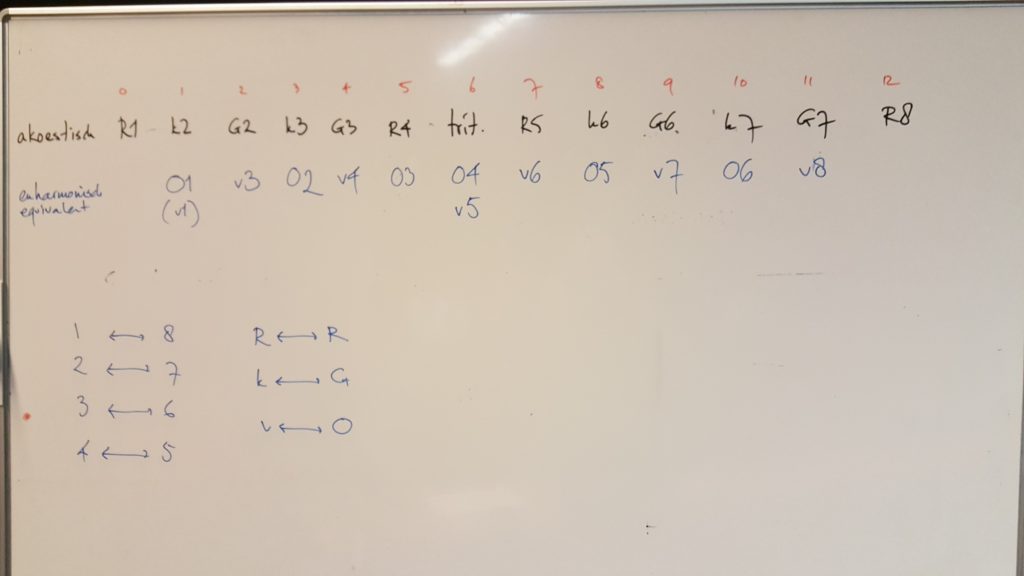 0 1 2 3 4 5 6 7 8 9 10 11 12
akoestisch R1 k2 G2 k3 G3 R4 trit. R5 k6 G6. k7 G7 R8
enharmonisch equivalent O1 v3 O2 v4 O3 O4 v6 O5 v7 O6 v8
(v1) v5
1 ↔ 8 R ↔ R
2 ↔ 7 k ↔ G
3 ↔ 6 v ↔ O
4 ↔ 5